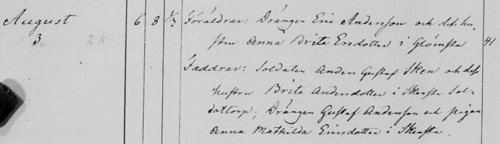 August 6 8 1/3 Föräldrar: Drängen Eric Andersson och dess hu-
3 stru Anna Brita Ersdotter i Glömsta 41
Faddrar: Soldaten Anders Gustaf Sken och dess
hustru Brita Andersdotter i Skensta Sol-
dattorp; Drängen Gustaf Andersson och pigan
Anna Mathilda Ericsdotter i Skensta.